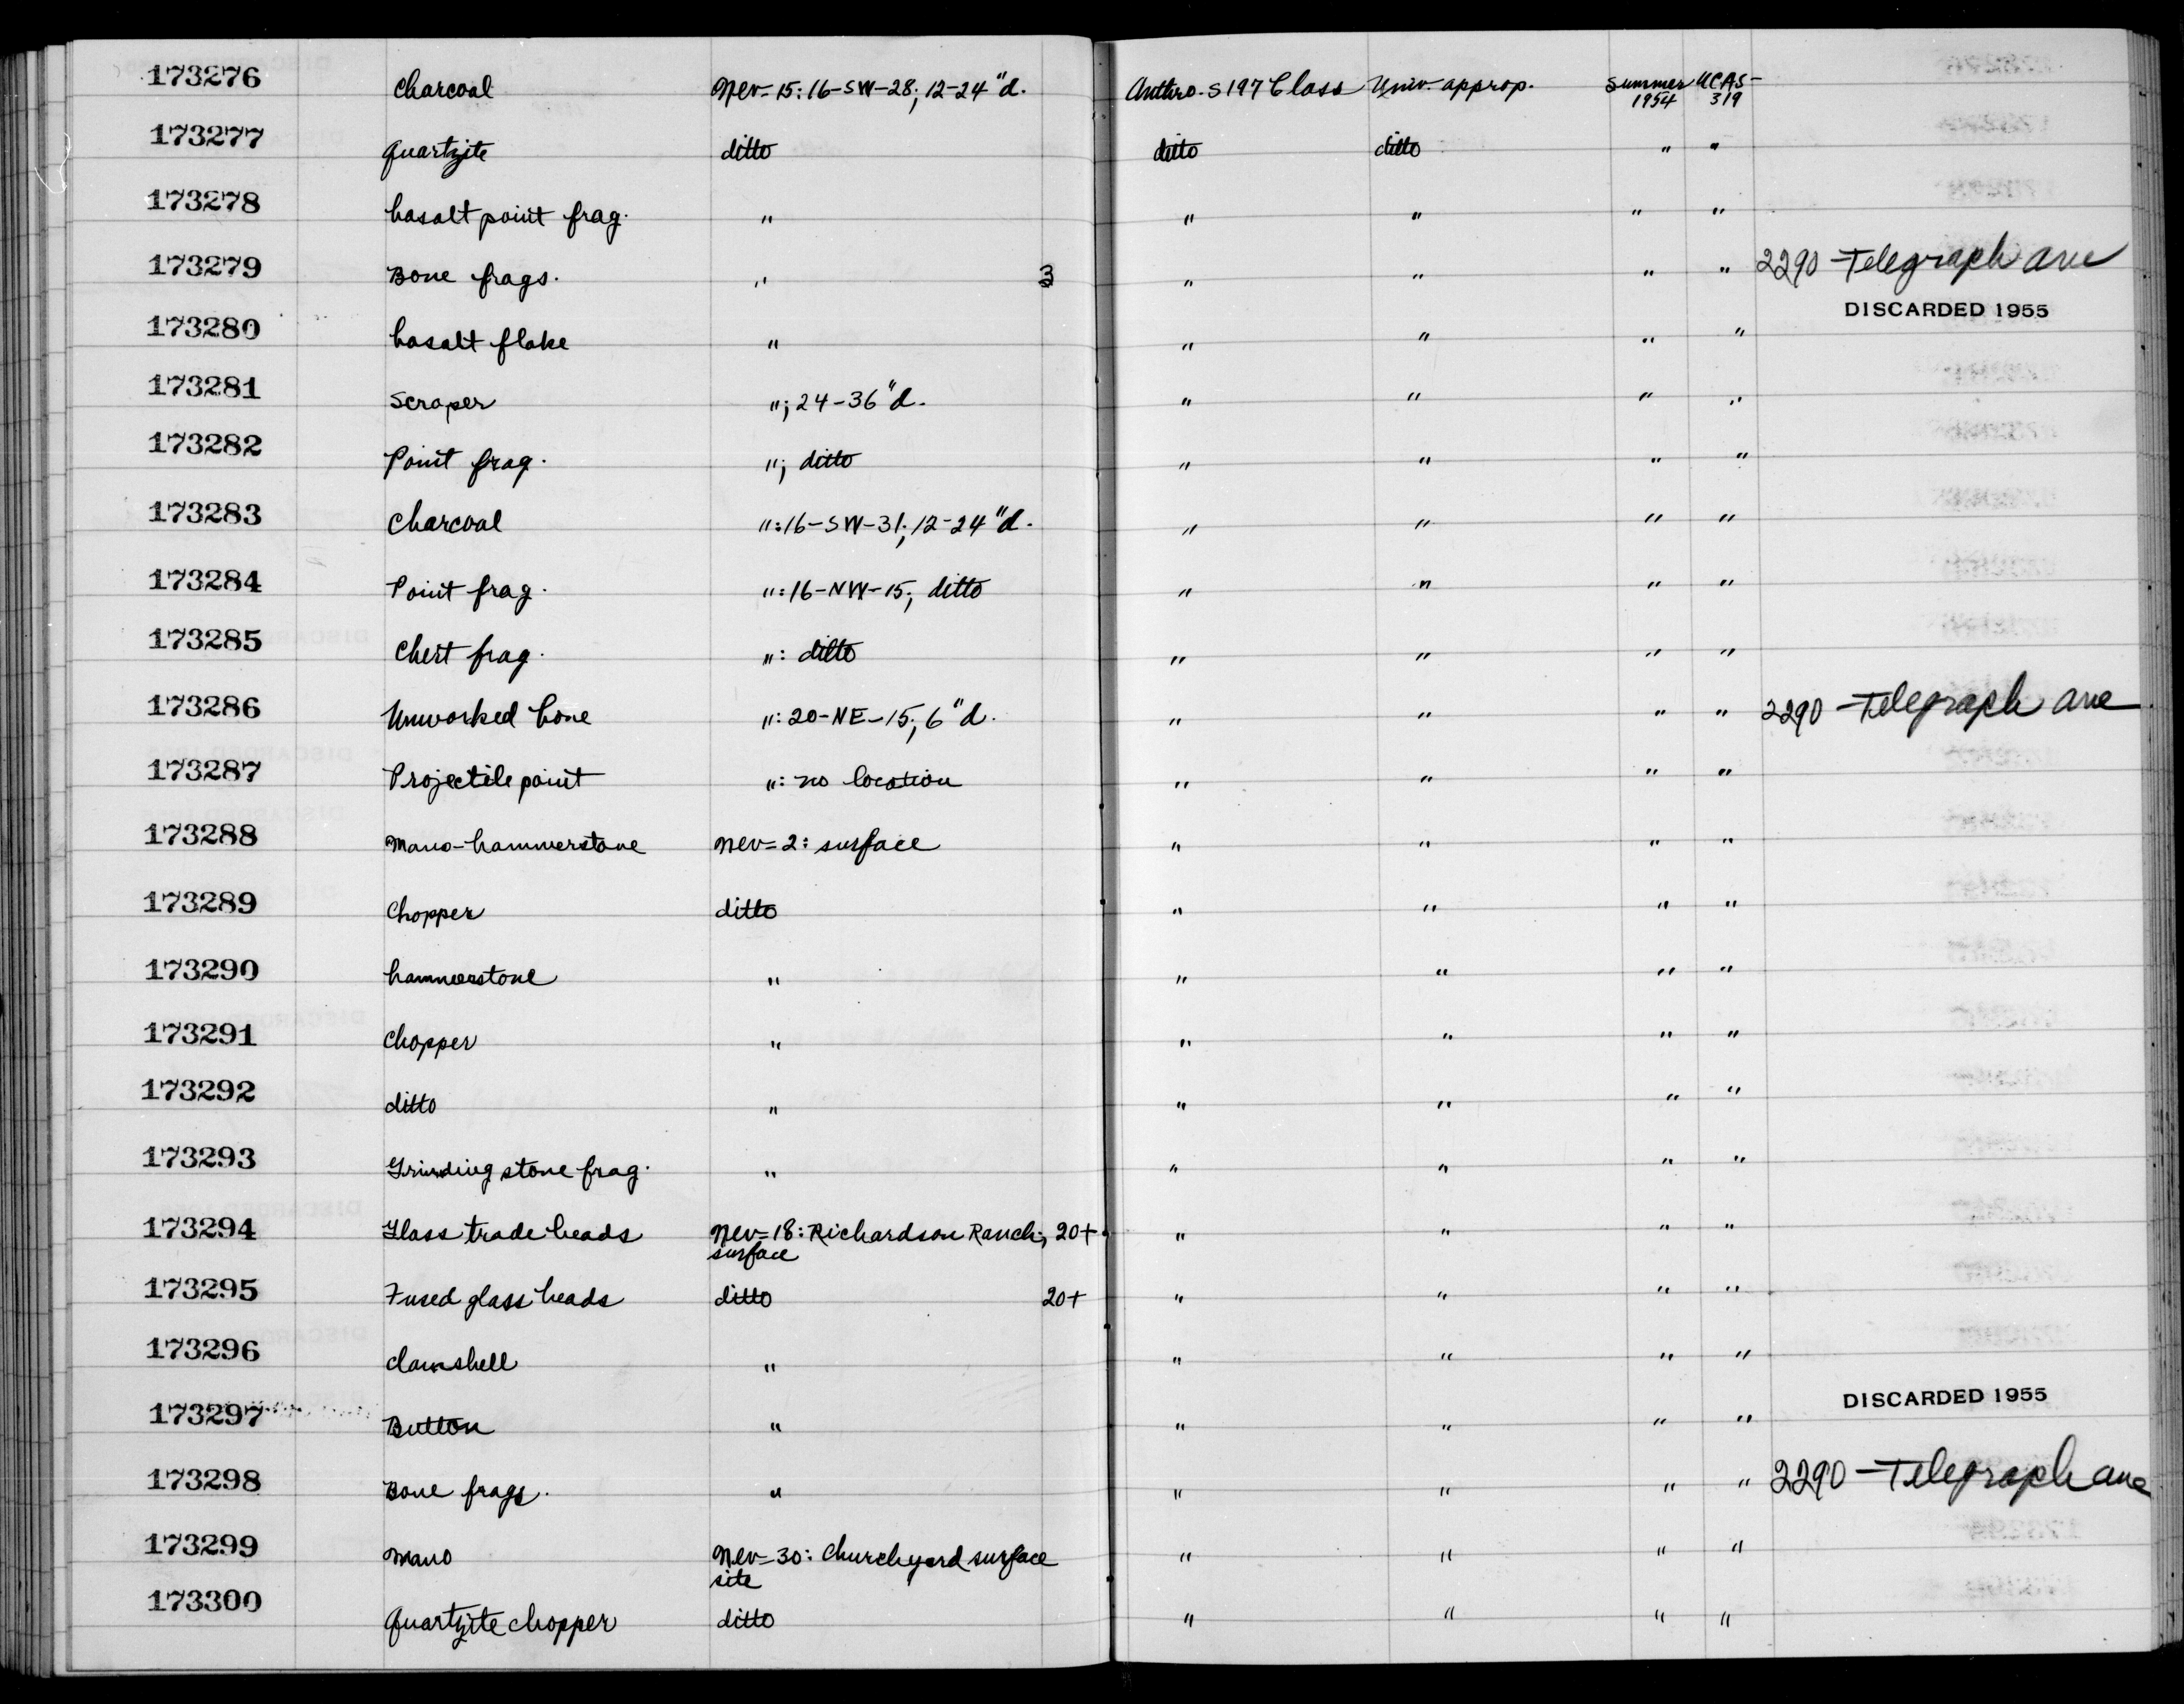 173276 Charcoal Nev-15: 16-SW-28; 12-24"d. Anthro. S197 Class Univ. approp. Summer 1954 UCAS-319
173277 Quartzite ditto ditto ditto " "
173278 basalt point frag. " " " " "
173279 Bone frags. " 3 " " " " 2290 Telegraph ave
173280 basalt flake " " " " " DISCARDED 1955
173281 Scraper "; 24-36"d. " " " "
173282 Point frag. "; ditto " " " "
173283 Charcoal ": 16-SW-31; 12-24"d. " " " "
173284 Point frag. ": 16-NW-15; ditto " " " "
173285 Chert frag. ": ditto " " " "
173286 Unworked bone ": 20-NE-15; 6"d. " " " " 2290 Telegraph ave
173287 Projectile point ": no location " " " "
173288 Mano-hammerstone Nev-2: surface " " " "
173289 Chopper ditto " " " "
173290 hammerstone " " " " "
173291 Chopper " " " " "
173292 ditto " " " " "
173293 Grinding stone frag. " " " " "
173294 Glass trade beads Nev-18: Richardson Ranch; surface 20+ " " " "
173295 Fused glass beads ditto 20+ " " " "
173296 clamshell " " " " "
173297 Button " " " " " DISCARDED 1955
173298 Bone frags. " " " " " 2290 Telegraph ave
173299 Mano Nev-30: Churchyard surface site " " " "
173300 Quartzite chopper ditto " " " "